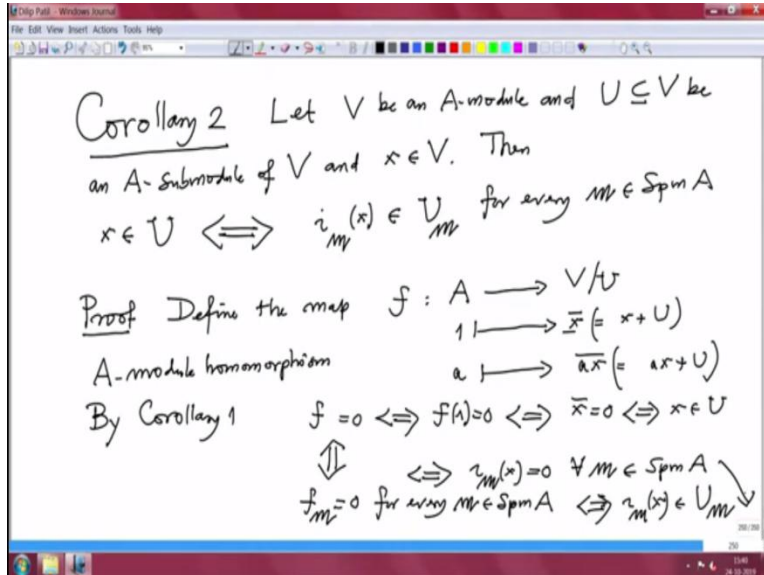 Dilip Patil - Windows Journal
File Edit View Insert Actions Tools Help
Corollary 2 Let V be an A-module and U ⊆ V be
an A-submodule of V and x ∈ V. Then
x ∈ U ⟺ i_m(x) ∈ U_m for every m ∈ Spm A
Proof Define the map f : A ⟶ V/U
1 ⟼ x̄ (= x + U)
A-module homomorphism a ⟼ \overline{ax} (= ax + U)
By Corollary 1 f = 0 ⟺ f(1)=0 ⟺ x̄=0 ⟺ x ∈ U
⇕ ⟺ i_m(x)=0 ∀ m ∈ Spm A
f_m = 0 for every m ∈ Spm A ⟺ i_m(x) ∈ U_m
250/250
250
15:41
24-10-2019